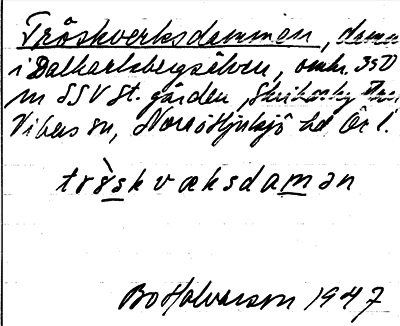 Tröskverksdammen, damm
i Dalkarlsbergsälven, omkr. 350
m SSV St. gården,
Vibers sn, Nora Hjulsjö hd Ör l.
tröskvæksdamən
Bo Halvarson 1947